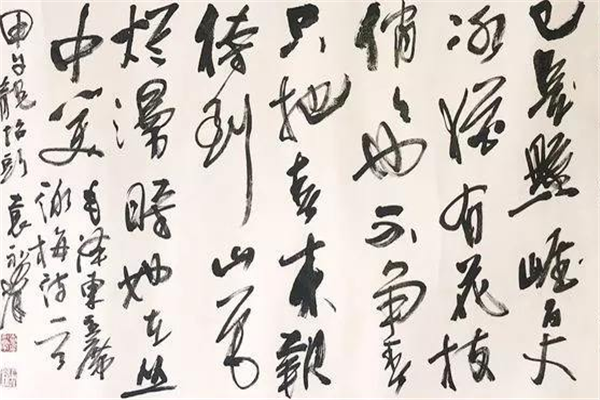 已是悬崖百丈
冰犹有花枝
俏々也不争春
只把春来报
待到山花
烂漫时她在丛
中笑
毛泽东主席
咏梅词一首
甲子龙抬头 袁